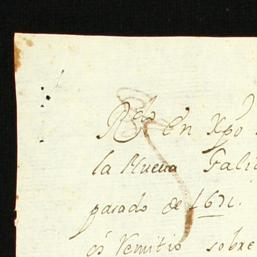 Rdo en Xpo
la Nueua Gali
pasado de 1671.
es Remitio sobre